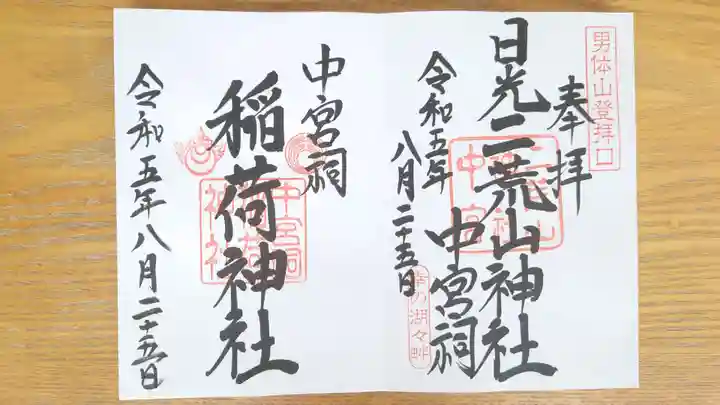 男体山登拝口
奉拝
日光二荒山神社
中宮祠
令和五年
八月二十五日
幸の湖々畔
中宮祠
稲荷神社
令和五年八月二十五日